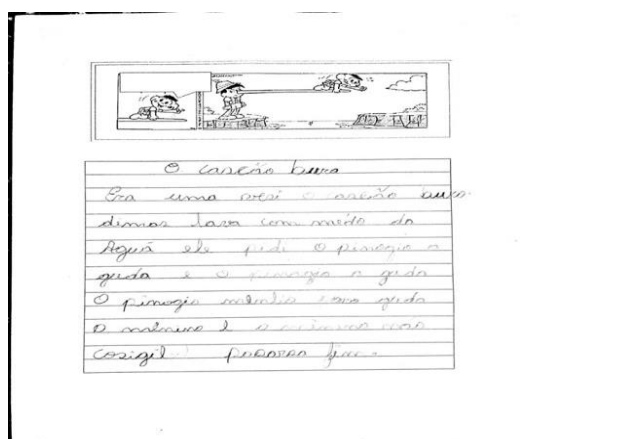 O caseño buro
Era uma vesi o caseño buro
dimas tava com medo da
Aguá ele pidi o pinogio a
guda e o pinogio a guda
O pinogio mintia para guda
o malnino e o
cosigil pasaraa fim.